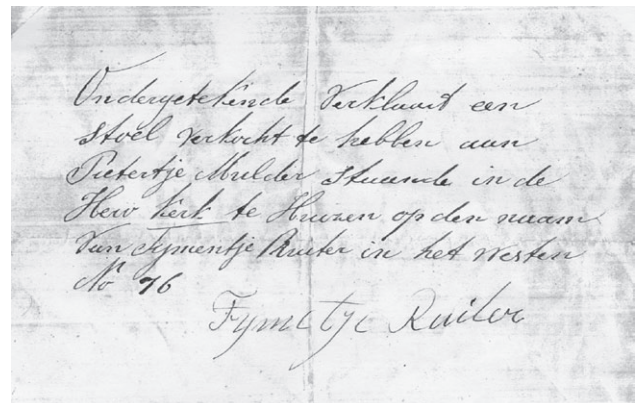 Ondergetekende Verklaart een
stoel verkocht te hebben aan
Pietertje Mulder staande in de
Herv Kerk te Huizen op den naam
Van Tymentje Ruiter in het westen
No 76
Tymetje Ruiter